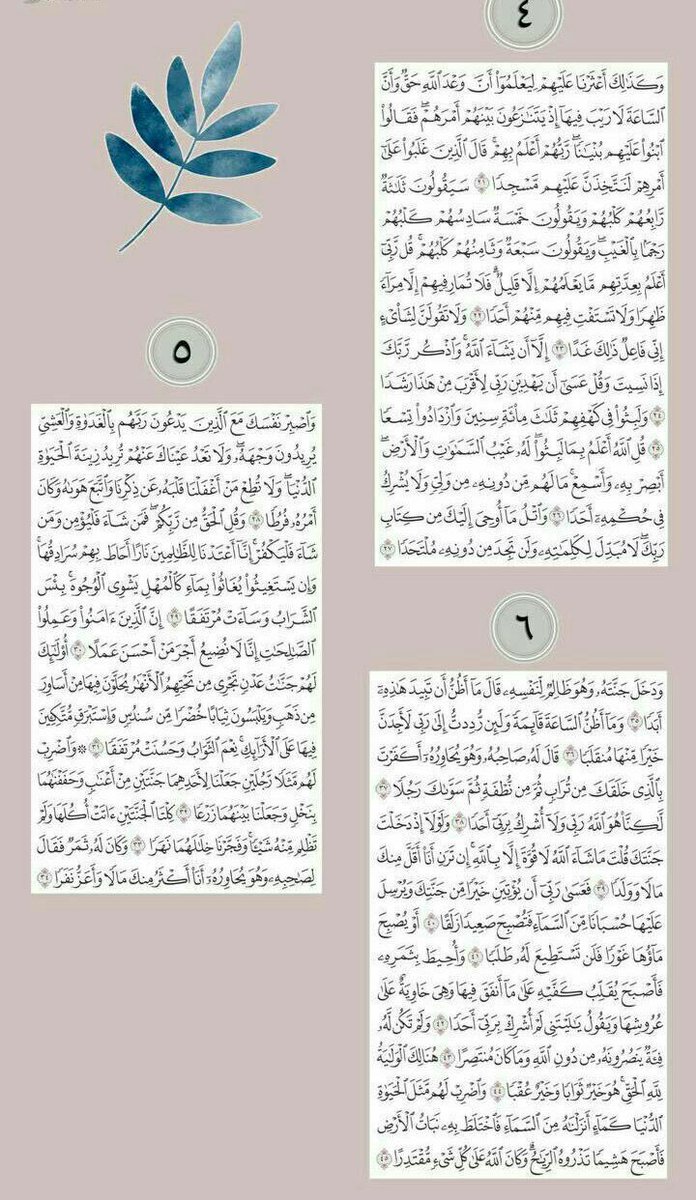 ٤
وَكَذَٰلِكَ أَعْثَرْنَا عَلَيْهِمْ لِيَعْلَمُوٓا۟ أَنَّ وَعْدَ ٱللَّهِ حَقٌّ وَأَنَّ
ٱلسَّاعَةَ لَا رَيْبَ فِيهَآ إِذْ يَتَنَٰزَعُونَ بَيْنَهُمْ أَمْرَهُمْ ۖ فَقَالُوا۟
ٱبْنُوا۟ عَلَيْهِم بُنْيَٰنًا ۖ رَّبُّهُمْ أَعْلَمُ بِهِمْ ۚ قَالَ ٱلَّذِينَ غَلَبُوا۟ عَلَىٰٓ
أَمْرِهِمْ لَنَتَّخِذَنَّ عَلَيْهِم مَّسْجِدًا ٢١ سَيَقُولُونَ ثَلَٰثَةٌ
رَّابِعُهُمْ كَلْبُهُمْ وَيَقُولُونَ خَمْسَةٌ سَادِسُهُمْ كَلْبُهُمْ
رَجْمًۢا بِٱلْغَيْبِ ۖ وَيَقُولُونَ سَبْعَةٌ وَثَامِنُهُمْ كَلْبُهُمْ ۚ قُل رَّبِّىٓ
أَعْلَمُ بِعِدَّتِهِم مَّا يَعْلَمُهُمْ إِلَّا قَلِيلٌ ۗ فَلَا تُمَارِ فِيهِمْ إِلَّا مِرَآءً
ظَٰهِرًا وَلَا تَسْتَفْتِ فِيهِم مِّنْهُمْ أَحَدًا ٢٢ وَلَا تَقُولَنَّ لِشَا۟ىْءٍ
إِنِّى فَاعِلٌ ذَٰلِكَ غَدًا ٢٣ إِلَّآ أَن يَشَآءَ ٱللَّهُ ۚ وَٱذْكُر رَّبَّكَ
إِذَا نَسِيتَ وَقُلْ عَسَىٰٓ أَن يَهْدِيَنِ رَبِّى لِأَقْرَبَ مِنْ هَٰذَا رَشَدًا
٢٤ وَلَبِثُوا۟ فِى كَهْفِهِمْ ثَلَٰثَ مِا۟ئَةٍ سِنِينَ وَٱزْدَادُوا۟ تِسْعًا
٢٥ قُلِ ٱللَّهُ أَعْلَمُ بِمَا لَبِثُوا۟ ۖ لَهُۥ غَيْبُ ٱلسَّمَٰوَٰتِ وَٱلْأَرْضِ ۖ
أَبْصِرْ بِهِۦ وَأَسْمِعْ ۚ مَا لَهُم مِّن دُونِهِۦ مِن وَلِىٍّ وَلَا يُشْرِكُ
فِى حُكْمِهِۦٓ أَحَدًا ٢٦ وَٱتْلُ مَآ أُوحِىَ إِلَيْكَ مِن كِتَابِ
رَبِّكَ ۖ لَا مُبَدِّلَ لِكَلِمَٰتِهِۦ وَلَن تَجِدَ مِن دُونِهِۦ مُلْتَحَدًا ٢٧
٥
وَٱصْبِرْ نَفْسَكَ مَعَ ٱلَّذِينَ يَدْعُونَ رَبَّهُم بِٱلْغَدَوٰةِ وَٱلْعَشِىِّ
يُرِيدُونَ وَجْهَهُۥ ۖ وَلَا تَعْدُ عَيْنَاكَ عَنْهُمْ تُرِيدُ زِينَةَ ٱلْحَيَوٰةِ
ٱلدُّنْيَا ۖ وَلَا تُطِعْ مَنْ أَغْفَلْنَا قَلْبَهُۥ عَن ذِكْرِنَا وَٱتَّبَعَ هَوَىٰهُ وَكَانَ
أَمْرُهُۥ فُرُطًا ٢٨ وَقُلِ ٱلْحَقُّ مِن رَّبِّكُمْ ۖ فَمَن شَآءَ فَلْيُؤْمِن وَمَن
شَآءَ فَلْيَكْفُرْ ۚ إِنَّآ أَعْتَدْنَا لِلظَّٰلِمِينَ نَارًا أَحَاطَ بِهِمْ سُرَادِقُهَا ۚ
وَإِن يَسْتَغِيثُوا۟ يُغَاثُوا۟ بِمَآءٍ كَٱلْمُهْلِ يَشْوِى ٱلْوُجُوهَ ۚ بِئْسَ
ٱلشَّرَابُ وَسَآءَتْ مُرْتَفَقًا ٢٩ إِنَّ ٱلَّذِينَ ءَامَنُوا۟ وَعَمِلُوا۟
ٱلصَّٰلِحَٰتِ إِنَّا لَا نُضِيعُ أَجْرَ مَنْ أَحْسَنَ عَمَلًا ٣٠ أُو۟لَٰٓئِكَ
لَهُمْ جَنَّٰتُ عَدْنٍ تَجْرِى مِن تَحْتِهِمُ ٱلْأَنْهَٰرُ يُحَلَّوْنَ فِيهَا مِنْ أَسَاوِرَ
مِن ذَهَبٍ وَيَلْبَسُونَ ثِيَابًا خُضْرًا مِّن سُندُسٍ وَإِسْتَبْرَقٍ مُّتَّكِـِٔينَ
فِيهَا عَلَى ٱلْأَرَآئِكِ ۚ نِعْمَ ٱلثَّوَابُ وَحَسُنَتْ مُرْتَفَقًا ٣١ ۞ وَٱضْرِبْ
لَهُم مَّثَلًا رَّجُلَيْنِ جَعَلْنَا لِأَحَدِهِمَا جَنَّتَيْنِ مِنْ أَعْنَٰبٍ وَحَفَفْنَٰهُمَا
بِنَخْلٍ وَجَعَلْنَا بَيْنَهُمَا زَرْعًا ٣٢ كِلْتَا ٱلْجَنَّتَيْنِ ءَاتَتْ أُكُلَهَا وَلَمْ
تَظْلِم مِّنْهُ شَيْـًٔا ۚ وَفَجَّرْنَا خِلَٰلَهُمَا نَهَرًا ٣٣ وَكَانَ لَهُۥ ثَمَرٌ فَقَالَ
لِصَٰحِبِهِۦ وَهُوَ يُحَاوِرُهُۥٓ أَنَا۠ أَكْثَرُ مِنكَ مَالًا وَأَعَزُّ نَفَرًا ٣٤
٦
وَدَخَلَ جَنَّتَهُۥ وَهُوَ ظَالِمٌ لِّنَفْسِهِۦ قَالَ مَآ أَظُنُّ أَن تَبِيدَ هَٰذِهِۦٓ
أَبَدًا ٣٥ وَمَآ أَظُنُّ ٱلسَّاعَةَ قَآئِمَةً وَلَئِن رُّدِدتُّ إِلَىٰ رَبِّى لَأَجِدَنَّ
خَيْرًا مِّنْهَا مُنقَلَبًا ٣٦ قَالَ لَهُۥ صَاحِبُهُۥ وَهُوَ يُحَاوِرُهُۥٓ أَكَفَرْتَ
بِٱلَّذِى خَلَقَكَ مِن تُرَابٍ ثُمَّ مِن نُّطْفَةٍ ثُمَّ سَوَّىٰكَ رَجُلًا ٣٧
لَّٰكِنَّا۠ هُوَ ٱللَّهُ رَبِّى وَلَآ أُشْرِكُ بِرَبِّىٓ أَحَدًا ٣٨ وَلَوْلَآ إِذْ دَخَلْتَ
جَنَّتَكَ قُلْتَ مَا شَآءَ ٱللَّهُ لَا قُوَّةَ إِلَّا بِٱللَّهِ ۚ إِن تَرَنِ أَنَا۠ أَقَلَّ مِنكَ
مَالًا وَوَلَدًا ٣٩ فَعَسَىٰ رَبِّىٓ أَن يُؤْتِيَنِ خَيْرًا مِّن جَنَّتِكَ وَيُرْسِلَ
عَلَيْهَا حُسْبَانًا مِّنَ ٱلسَّمَآءِ فَتُصْبِحَ صَعِيدًا زَلَقًا ٤٠ أَوْ يُصْبِحَ
مَآؤُهَا غَوْرًا فَلَن تَسْتَطِيعَ لَهُۥ طَلَبًا ٤١ وَأُحِيطَ بِثَمَرِهِۦ
فَأَصْبَحَ يُقَلِّبُ كَفَّيْهِ عَلَىٰ مَآ أَنفَقَ فِيهَا وَهِىَ خَاوِيَةٌ عَلَىٰ
عُرُوشِهَا وَيَقُولُ يَٰلَيْتَنِى لَمْ أُشْرِكْ بِرَبِّىٓ أَحَدًا ٤٢ وَلَمْ تَكُن لَّهُۥ
فِئَةٌ يَنصُرُونَهُۥ مِن دُونِ ٱللَّهِ وَمَا كَانَ مُنتَصِرًا ٤٣ هُنَالِكَ ٱلْوَلَٰيَةُ
لِلَّهِ ٱلْحَقِّ ۚ هُوَ خَيْرٌ ثَوَابًا وَخَيْرٌ عُقْبًا ٤٤ وَٱضْرِبْ لَهُم مَّثَلَ ٱلْحَيَوٰةِ
ٱلدُّنْيَا كَمَآءٍ أَنزَلْنَٰهُ مِنَ ٱلسَّمَآءِ فَٱخْتَلَطَ بِهِۦ نَبَاتُ ٱلْأَرْضِ
فَأَصْبَحَ هَشِيمًا تَذْرُوهُ ٱلرِّيَٰحُ ۗ وَكَانَ ٱللَّهُ عَلَىٰ كُلِّ شَىْءٍ مُّقْتَدِرًا ٤٥